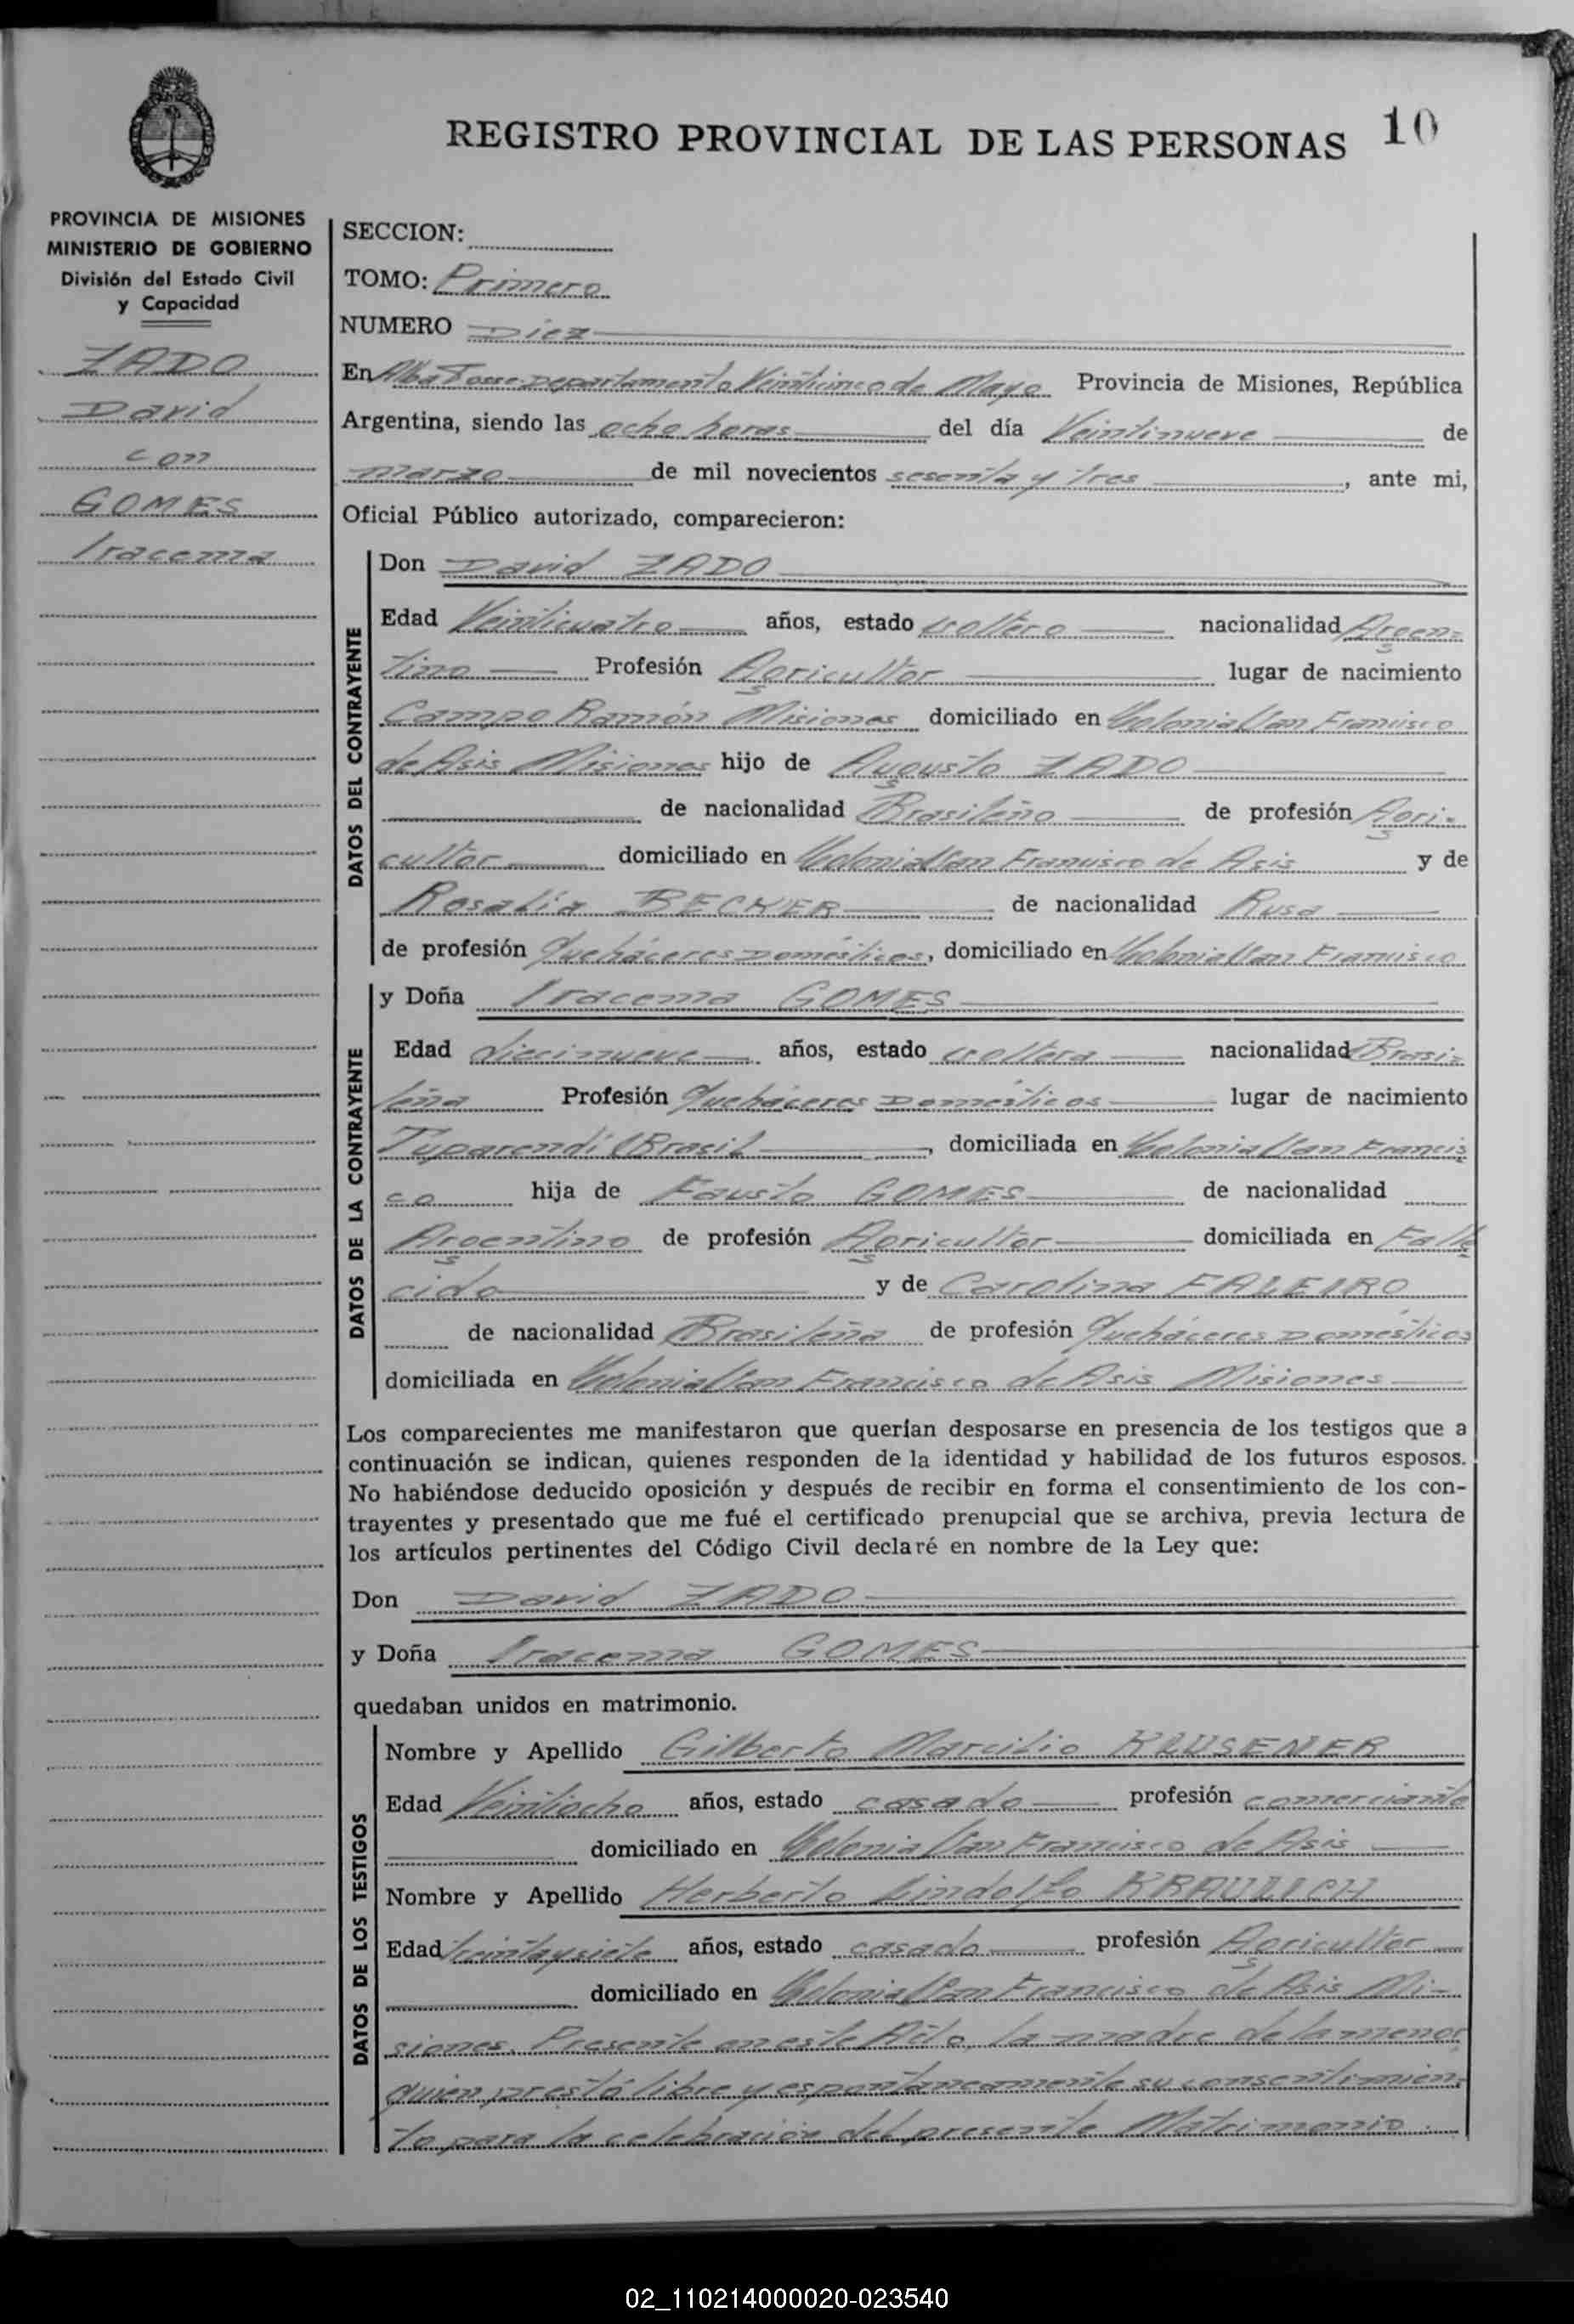 REGISTRO PROVINCIAL DE LAS PERSONAS 10
PROVINCIA DE MISIONES
MINISTERIO DE GOBIERNO
División del Estado Civil
y Capacidad
ZADO
David
con
GOMES
Iracema
SECCION:
TOMO: Primero
NUMERO Diez
En Alba Posse Departamento Veinticinco de Mayo Provincia de Misiones, República
Argentina, siendo las ocho horas del día Veintinueve de
marzo de mil novecientos sesenta y tres, ante mi,
Oficial Público autorizado, comparecieron:
DATOS DEL CONTRAYENTE
Don David ZADO
Edad Veinticuatro años, estado soltero nacionalidad Argen-
tino Profesión Agricultor lugar de nacimiento
Campo Ramón Misiones domiciliado en Colonia San Francisco
de Asis Misiones hijo de Augusto ZADO
de nacionalidad Brasileño de profesión Agri-
cultor domiciliado en Colonia San Francisco de Asis y de
Rosalía BECKER de nacionalidad Rusa
de profesión Quehaceres Domésticos, domiciliado en Colonia San Francisco
DATOS DE LA CONTRAYENTE
y Doña Iracema GOMES
Edad diecinueve años, estado soltera nacionalidad Brasi-
leña Profesión Quehaceres Domésticos lugar de nacimiento
Tuparendí (Brasil, domiciliada en Colonia San Francis
co hija de Fausto GOMES de nacionalidad
Argentino de profesión Agricultor domiciliada en Falle
cido y de Carolina FALEIRO
de nacionalidad Brasileña de profesión Quehaceres Domésticos
domiciliada en Colonia San Francisco de Asis Misiones
Los comparecientes me manifestaron que querían desposarse en presencia de los testigos que a
continuación se indican, quienes responden de la identidad y habilidad de los futuros esposos.
No habiéndose deducido oposición y después de recibir en forma el consentimiento de los con-
trayentes y presentado que me fué el certificado prenupcial que se archiva, previa lectura de
los artículos pertinentes del Código Civil declaré en nombre de la Ley que:
Don David ZADO
y Doña Iracema GOMES
quedaban unidos en matrimonio.
DATOS DE LOS TESTIGOS
Nombre y Apellido Gilberto Marcilio KLUSENER
Edad Veintiocho años, estado casado profesión comerciante
domiciliado en Colonia San Francisco de Asis
Nombre y Apellido Herberto Lindolfo
Edad treintaysiete años, estado casado profesión Agricultor
domiciliado en Colonia San Francisco de Asis Mi-
siones. Presente en este Acto, la madre de la menor
quien prestó libre y espontaneamente su consentimien-
to para la celebración del presente Matrimonio.
02_110214000020-023540